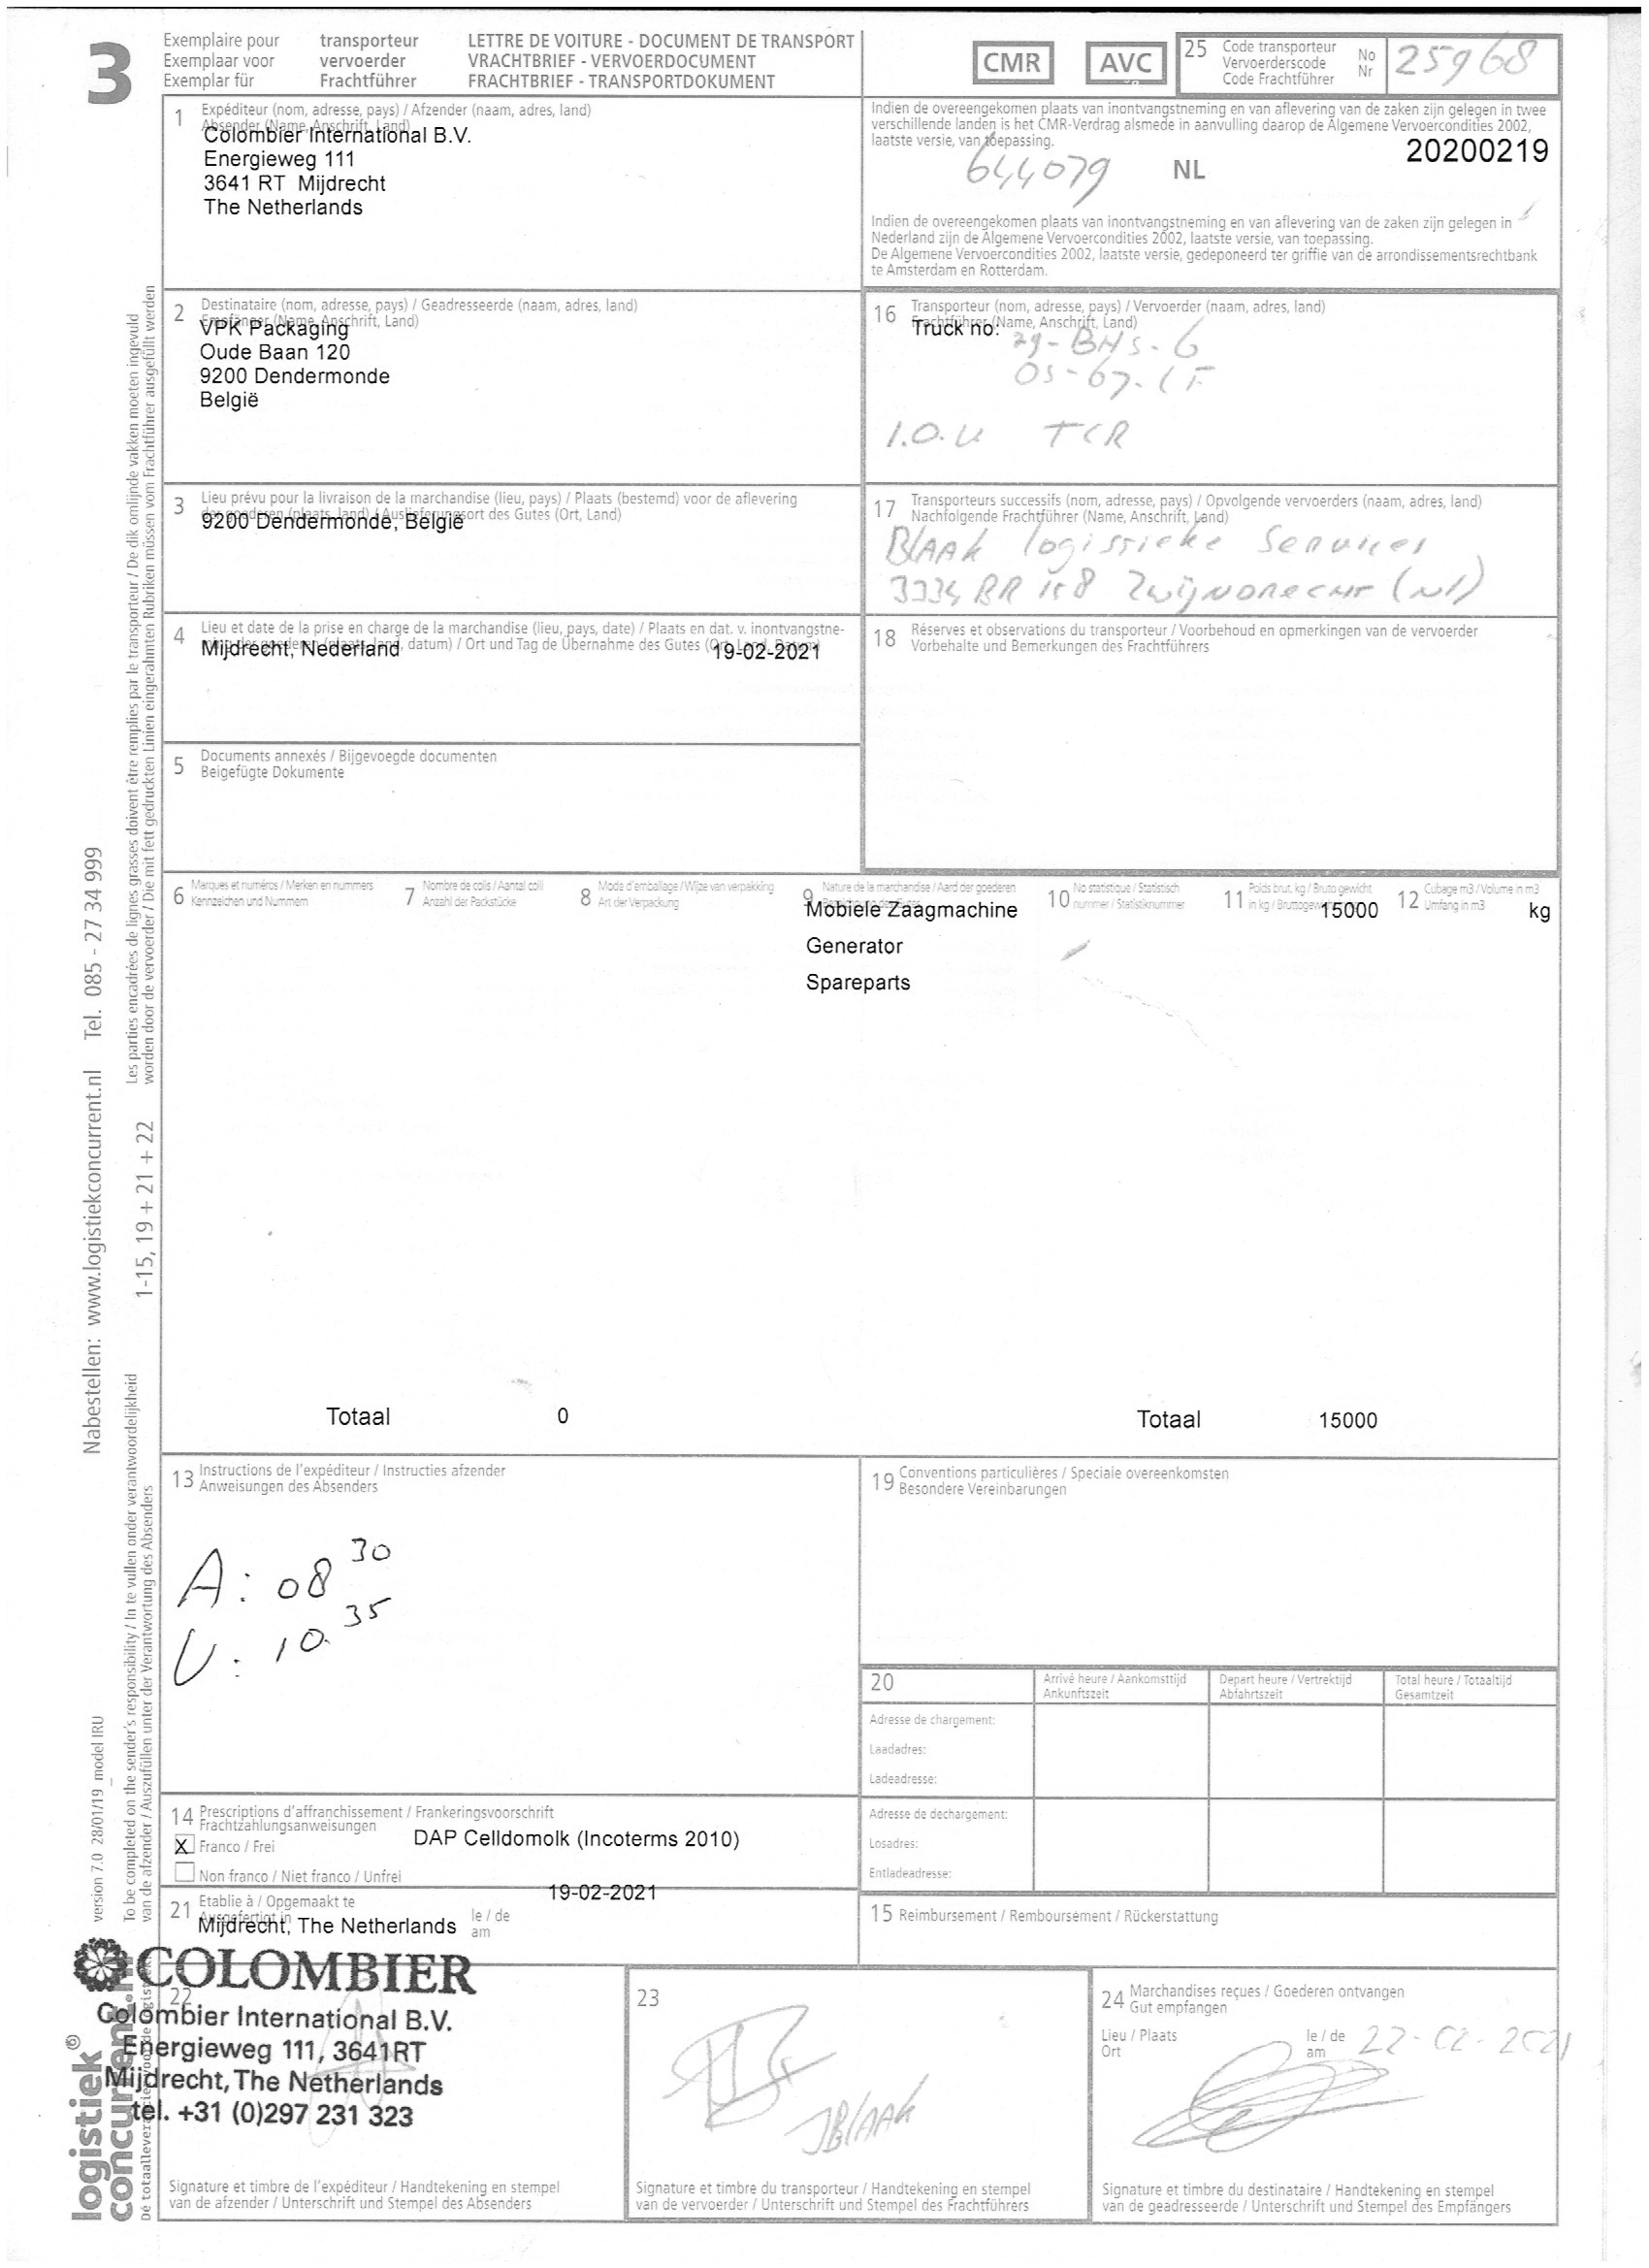 3
Exemplaire pour transporteur
Exemplaar voor vervoerder
Exemplar für Frachtführer
LETTRE DE VOITURE - DOCUMENT DE TRANSPORT
VRACHTBRIEF - VERVOERDOCUMENT
FRACHTBRIEF - TRANSPORTDOKUMENT
CMR
AVC
25 Code transporteur
Vervoerderscode
Code Frachtführer
No
Nr
25968
1 Expéditeur (nom, adresse, pays) / Afzender (naam, adres, land)
Absender (Name, Anschrift, Land)
Colombier International B.V.
Energieweg 111
3641 RT Mijdrecht
The Netherlands
Indien de overeengekomen plaats van inontvangstneming en van aflevering van de zaken zijn gelegen in twee
verschillende landen is het CMR-Verdrag alsmede in aanvulling daarop de Algemene Vervoercondities 2002,
laatste versie, van toepassing.
20200219
644079
NL
Indien de overeengekomen plaats van inontvangstneming en van aflevering van de zaken zijn gelegen in
Nederland zijn de Algemene Vervoercondities 2002, laatste versie, van toepassing.
De Algemene Vervoercondities 2002, laatste versie, gedeponeerd ter griffie van de arrondissementsrechtbank
te Amsterdam en Rotterdam.
2 Destinataire (nom, adresse, pays) / Geadresseerde (naam, adres, land)
Empfänger (Name, Anschrift, Land)
VPK Packaging
Oude Baan 120
9200 Dendermonde
België
16 Transporteur (nom, adresse, pays) / Vervoerder (naam, adres, land)
Frachtführer (Name, Anschrift, Land)
Truck no:
29-BHS-6
I.O.U TCR
3 Lieu prévu pour la livraison de la marchandise (lieu, pays) / Plaats (bestemd) voor de aflevering
der goederen (plaats, land) / Auslieferungsort des Gutes (Ort, Land)
9200 Dendermonde, België
17 Transporteurs successifs (nom, adresse, pays) / Opvolgende vervoerders (naam, adres, land)
Nachfolgende Frachtführer (Name, Anschrift, Land)
BlAAK logistieke Services
3334 BR 158 Zwijndrecht (Nl)
4 Lieu et date de la prise en charge de la marchandise (lieu, pays, date) / Plaats en dat. v. inontvangstne-
ming der goederen (plaats, land, datum) / Ort und Tag de Übernahme des Gutes (Ort, Land, Datum)
Mijdrecht, Nederland 19-02-2021
18 Réserves et observations du transporteur / Voorbehoud en opmerkingen van de vervoerder
Vorbehalte und Bemerkungen des Frachtführers
5 Documents annexés / Bijgevoegde documenten
Beigefügte Dokumente
6 Marques et numéros / Merken en nummers
Kennzeichen und Nummern
7 Nombre de colis / Aantal colli
Anzahl der Packstücke
8 Mode d'emballage / Wijze van verpakking
Art der Verpackung
9 Nature de la marchandise / Aard der goederen
Bezeichnung des Gutes
10 No statistique / Statistisch
nummer / Statistiknummer
11 Poids brut, kg / Bruto gewicht
in kg / Bruttogewicht
12 Cubage m3 / Volume in m3
Umfang in m3
Mobiele Zaagmachine 15000 kg
Generator
Spareparts
Totaal 0 Totaal 15000
13 Instructions de l'expéditeur / Instructies afzender
Anweisungen des Absenders
A: 08 30
V: 10. 35
19 Conventions particulières / Speciale overeenkomsten
Besondere Vereinbarungen
20
Arrivé heure / Aankomsttijd
Ankunftszeit
Depart heure / Vertrektijd
Abfahrtszeit
Total heure / Totaaltijd
Gesamtzeit
Adresse de chargement:
Laadadres:
Ladeadresse:
Adresse de dechargement:
Losadres:
Entladeadresse:
14 Prescriptions d'affranchissement / Frankeringsvoorschrift
Frachtzahlungsanweisungen
X Franco / Frei
DAP Celldomolk (Incoterms 2010)
Non franco / Niet franco / Unfrei
21 Etablie à / Opgemaakt te
Ausgefertigt in
Mijdrecht, The Netherlands
le / de
am
19-02-2021
15 Reimbursement / Remboursement / Rückerstattung
22
COLOMBIER
Colombier International B.V.
Energieweg 111, 3641RT
Mijdrecht, The Netherlands
tel. +31 (0)297 231 323
Signature et timbre de l'expéditeur / Handtekening en stempel
van de afzender / Unterschrift und Stempel des Absenders
23
JBlAAK
Signature et timbre du transporteur / Handtekening en stempel
van de vervoerder / Unterschrift und Stempel des Frachtführers
24 Marchandises reçues / Goederen ontvangen
Gut empfangen
Lieu / Plaats
Ort
le / de
am
22-02-2021
Signature et timbre du destinataire / Handtekening en stempel
van de geadresseerde / Unterschrift und Stempel des Empfängers
Les parties encadrées de lignes grasses doivent être remplies par le transporteur / De dik omlijnde vakken moeten ingevuld
worden door de vervoerder / Die mit fett gedruckten Linien eingerahmten Rubriken müssen vom Frachtführer ausgefüllt werden
Nabestellen: www.logistiekconcurrent.nl Tel. 085 - 27 34 999
1-15, 19 + 21 + 22
To be completed on the sender's responsibility / In te vullen onder verantwoordelijkheid
van de afzender / Auszufüllen unter der Verantwortung des Absenders
version 7.0 28/01/19 model IRU
logistiek
concurrent.nl